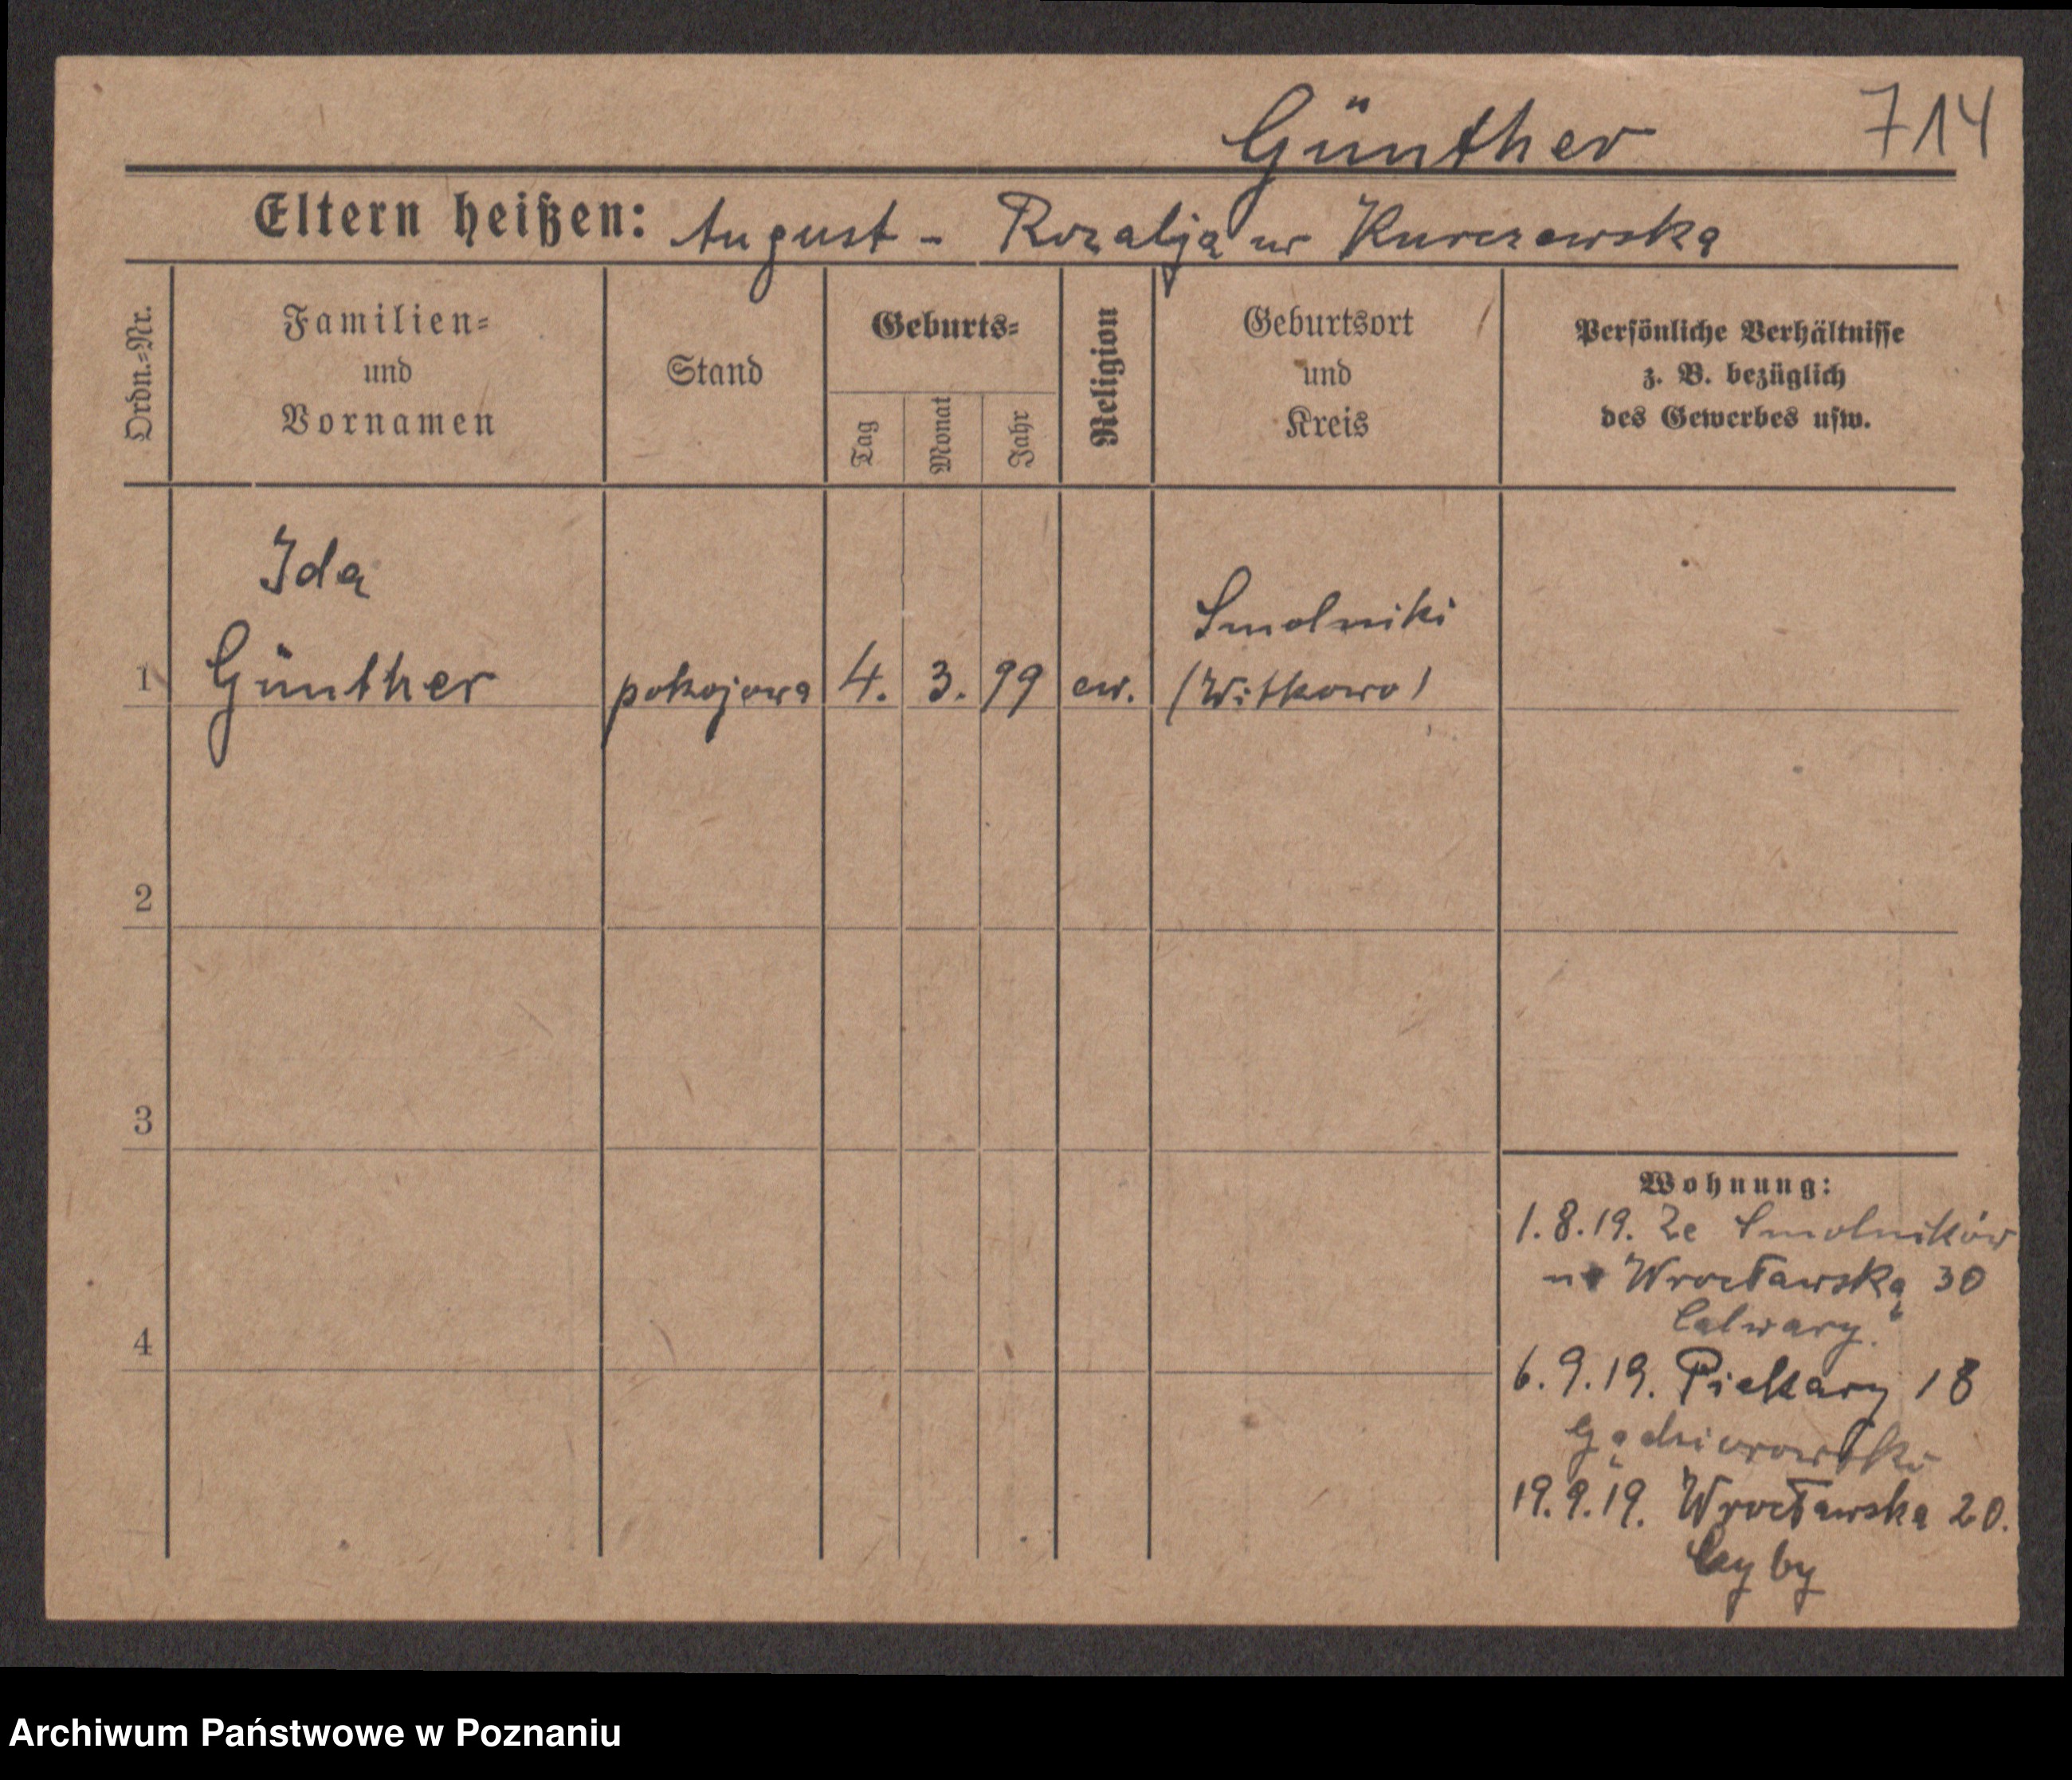 Günther 714
Eltern heißen: August - Rozalja ur Kurczewska
Ordn.=Nr.
Familien=
und
Vornamen
Stand
Geburts=
Tag
Monat
Jahr
Religion
Geburtsort
und
Kreis
Persönliche Verhältnisse
z. B. bezüglich
des Gewerbes usw.
Ida
Smolniki
1 Günther pokojowa 4. 3. 99 ew. (Witkowo)
2
3
4
Wohnung:
1.8.19. Ze Smolników
na Wrocławską 30
Calvary.
6.9.19. Piekary 18
19.9.19. Wrocławska 20.
Archiwum Państwowe w Poznaniu